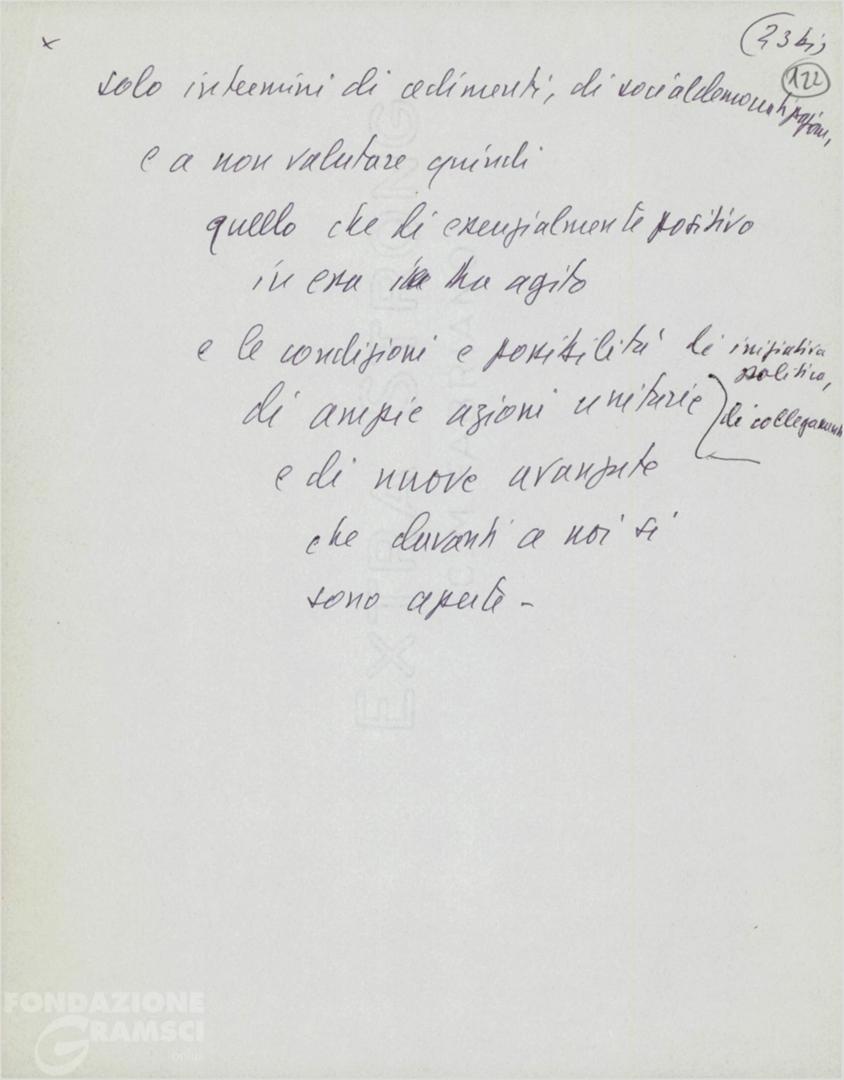 x
23 bis
122
solo in termini di cedimenti, di socialdemocratizzazione,
e a non valutare quindi
quello che di essenzialmente positivo
in essa ha agito
e le condizioni e possibilità di iniziativa
politica,
di ampie azioni unitarie
di collegamenti
e di nuove avanzate
che davanti a noi si
sono aperte -
EXTRA STRONG
FONDAZIONE
GRAMSCI
onlus